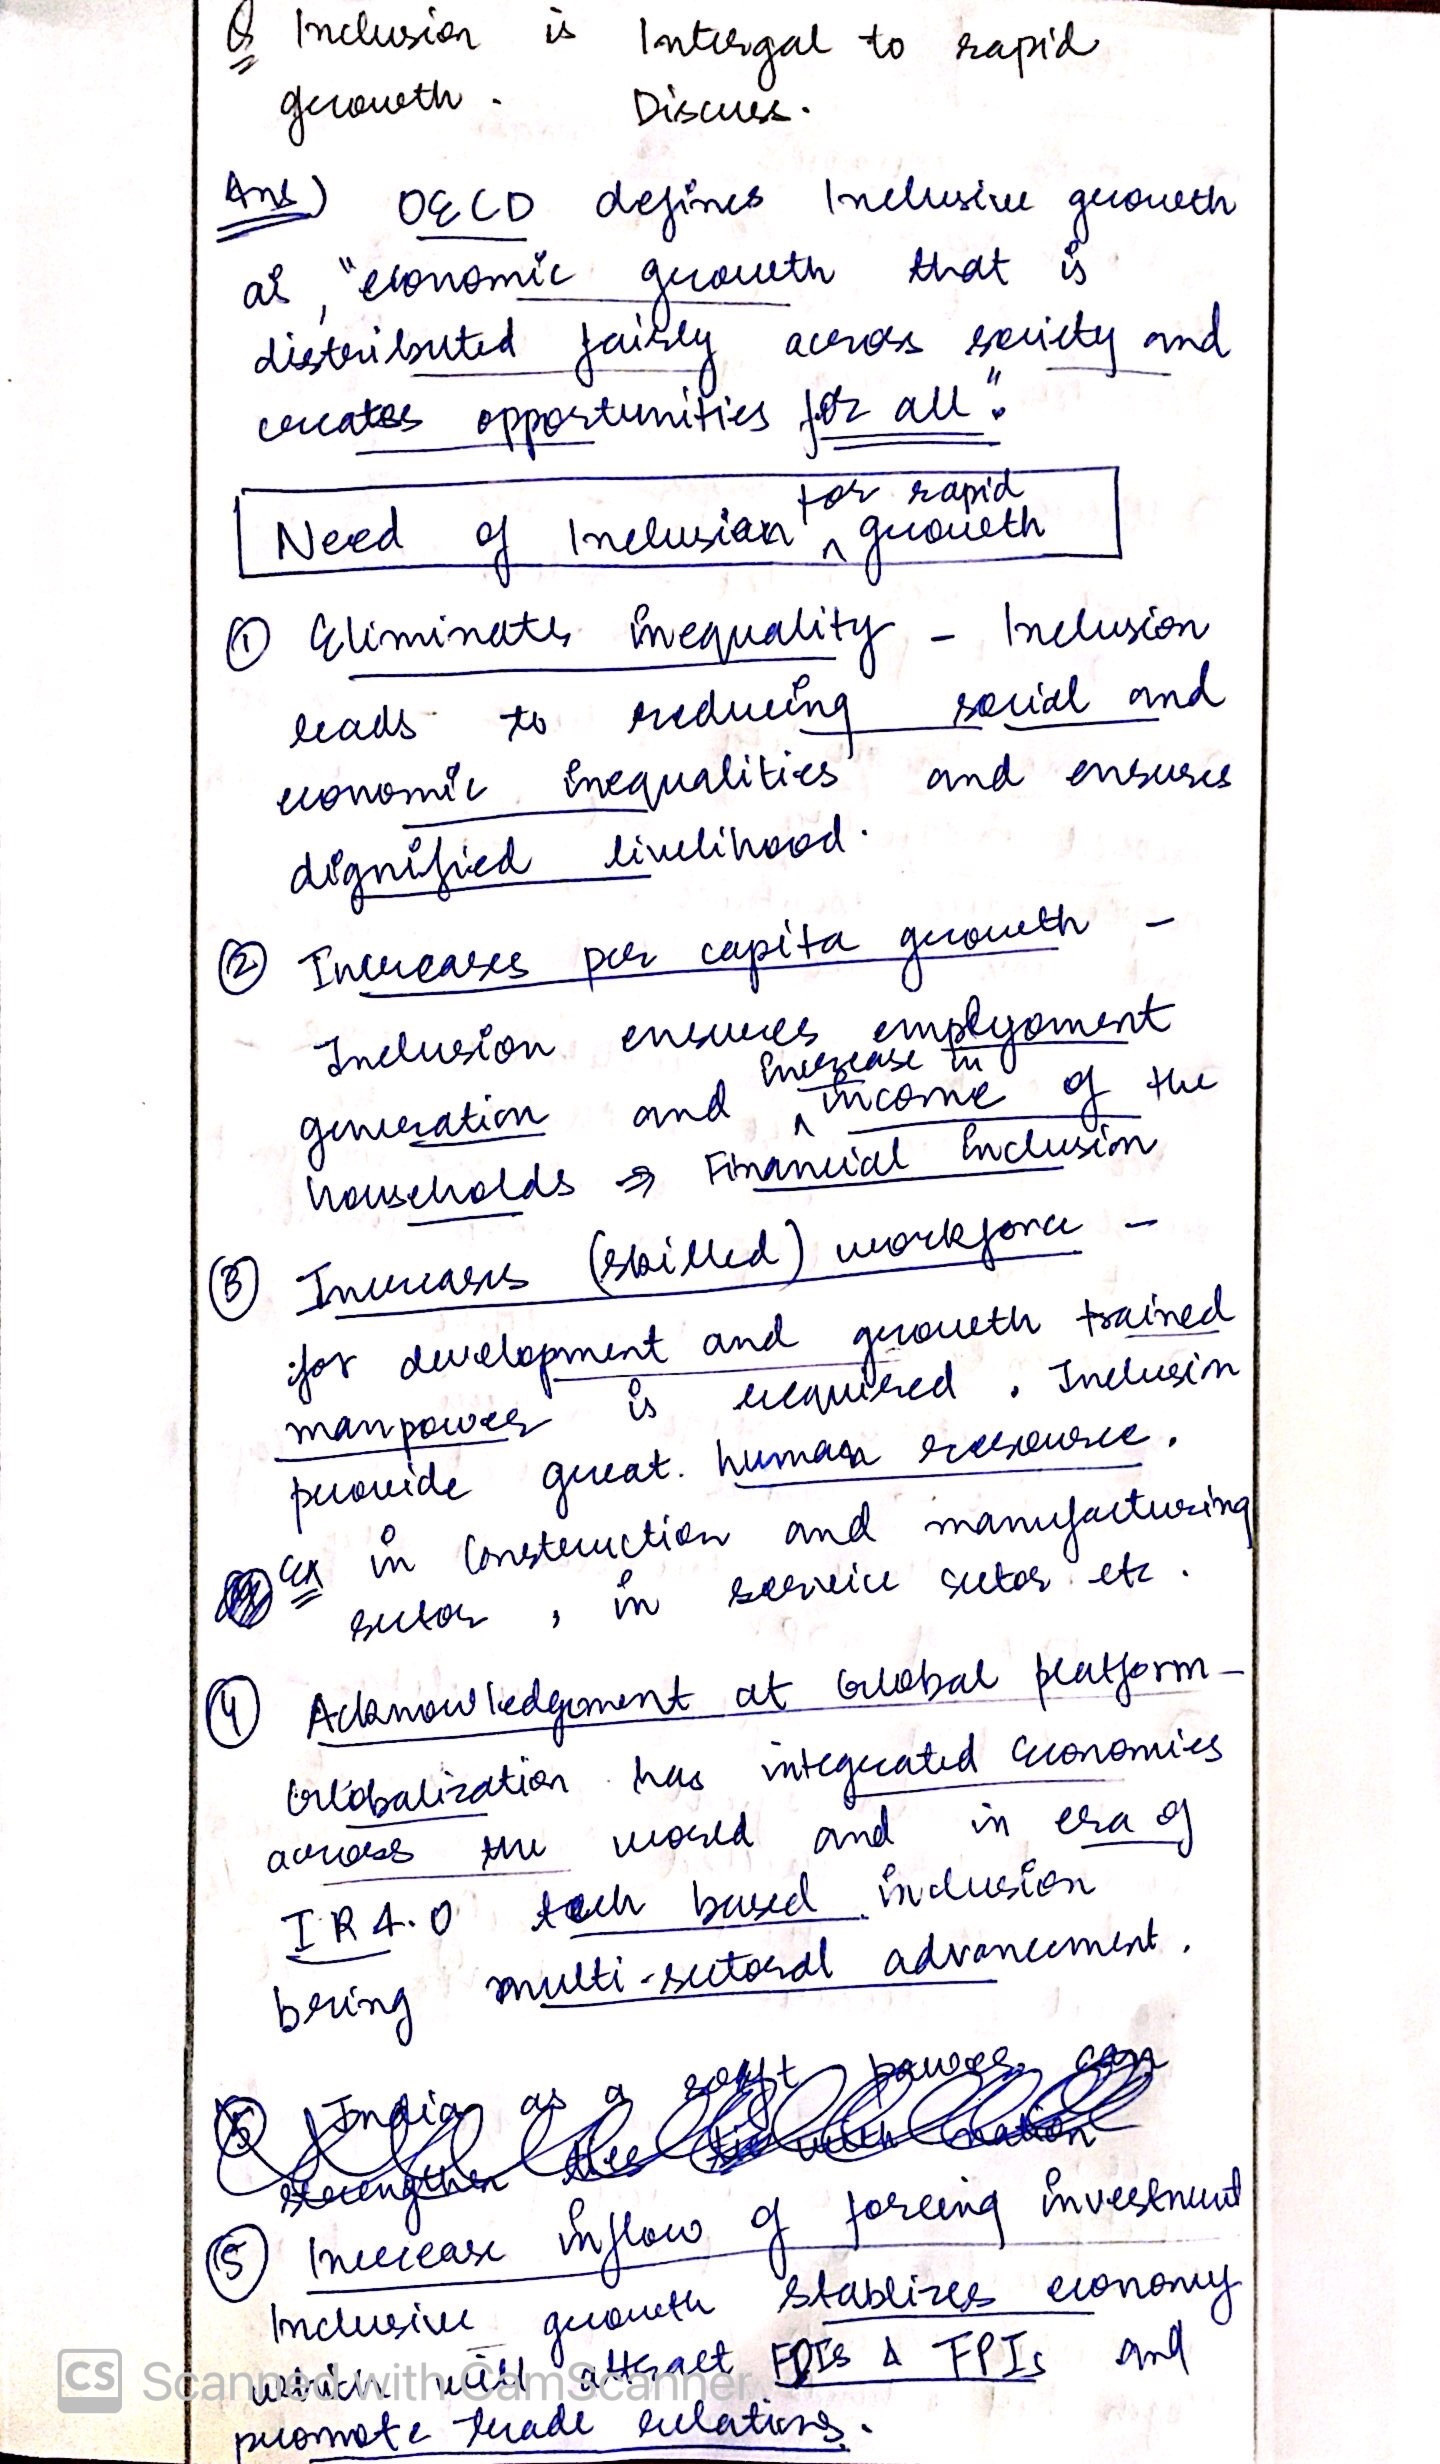 Q Inclusion is Intergal to rapid
growth. Discuss.
Ans) OECD defines Inclusive growth
as, "economic growth that is
distributed fairly across society and
creates opportunities for all".
for rapid
Need of Inclusion ^ growth
① Eliminates inequality - Inclusion
leads to reducing social and
economic inequalities and ensures
dignified livelihood.
② Increases per capita growth -
Inclusion ensures emplyoment
increase in
generation and ^ income of the
households ⇒ Financial inclusion
③ Increases (skilled) workforce -
for development and growth trained
manpower is required. Inclusion
provide great human resource.
Ex in Construction and manufacturing
sector, in service sector etc.
④ Acknowledgement at Global platform -
Globalization has integrated economies
across the world and in era of
IR 4.0 tech based inclusion
bring multi-sectoral advancement.
India as a soft power can
strengthen ties with nation
⑤ Increase inflow of foreing investment
Inclusive growth stablizes economy
which will attract FDIs & FPIs and
promote trade relations.
CS Scanned with CamScanner